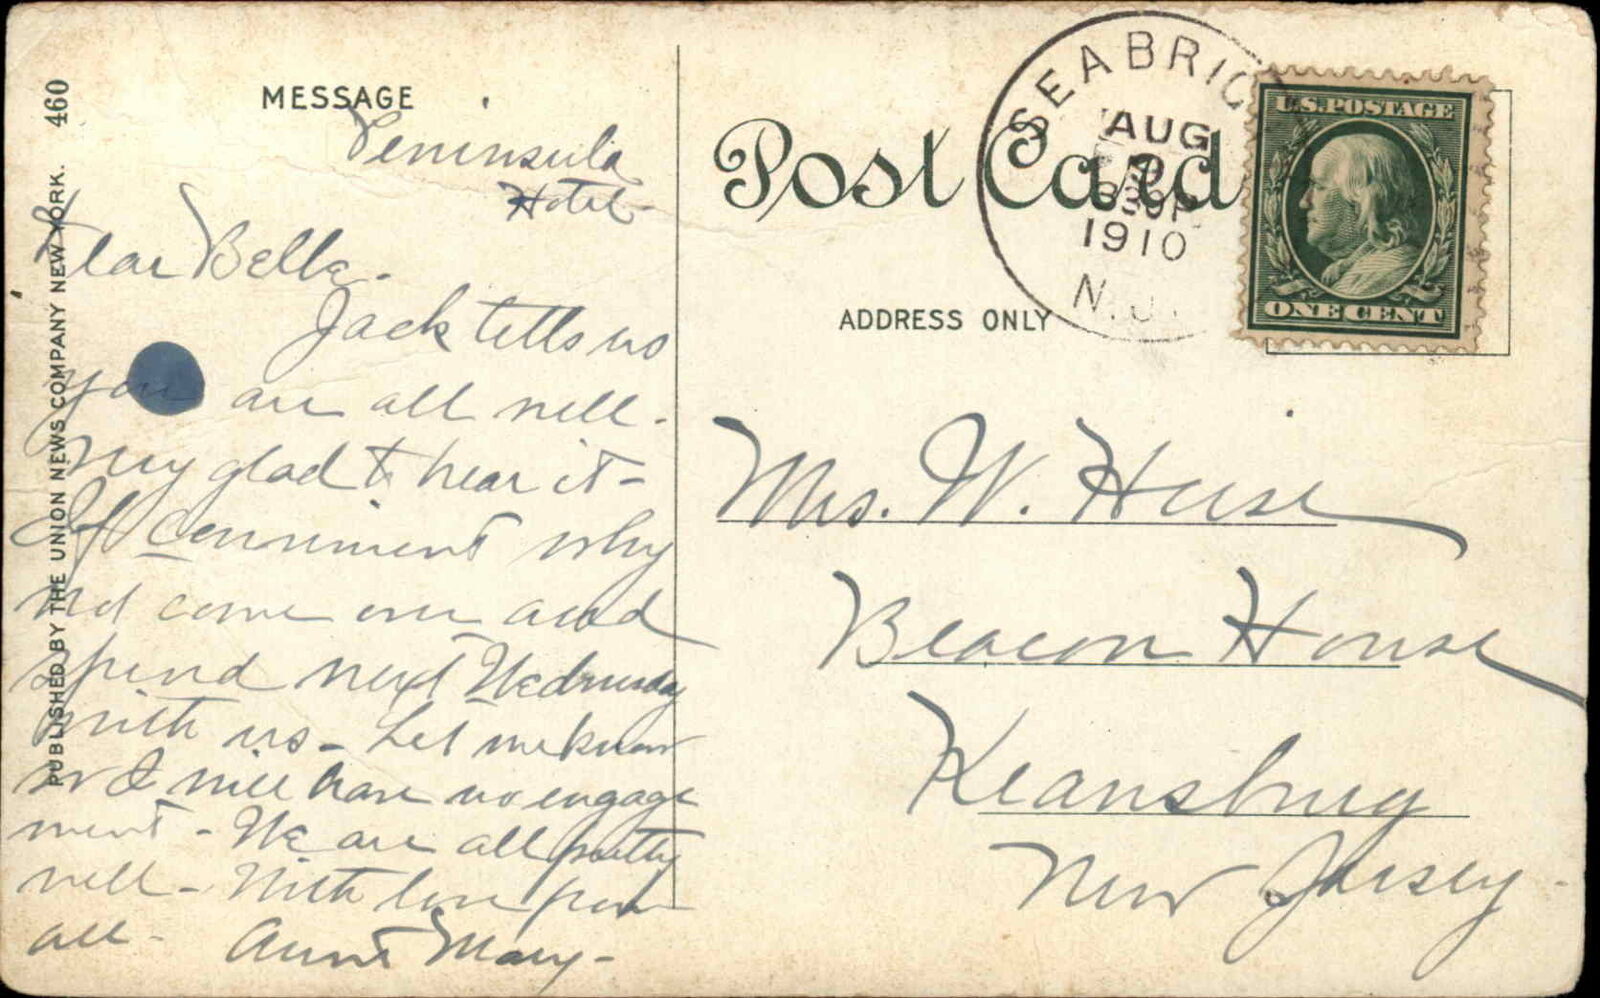 460
PUBLISHED BY THE UNION NEWS COMPANY NEW YORK.
MESSAGE
Peninsula
Hotel-
Dear Bella-
Jack tells us
you are all well.
Very glad to hear it-
If convenient why
not come over and
spend next Wednesday
with us- Let me know
so I will have no engage
ment- We are all pretty
well- With love from
all- Aunt Mary-
Post Card
ADDRESS ONLY
SEABRIG
AUG
1910
N.J.
U.S. POSTAGE
ONE CENT
Mrs. W. Heise
Beacon House
Keansburg
New Jersey.